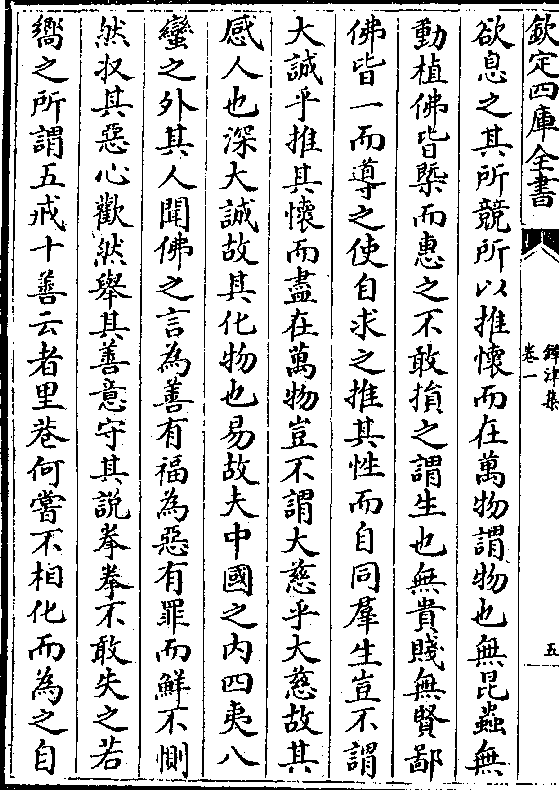 欽定四庫全書
鐔津集
卷一
五
欲息之其所競所以推懷而在萬物謂物也無昆蟲無
動植佛皆槩而惠之不敢損之謂生也無貴賤無賢鄙
佛皆一而導之使自求之推其性而自同羣生豈不謂
大誠乎推其懷而盡在萬物豈不謂大慈乎大慈故其
感人也深大誠故其化物也易故夫中國之内四夷八
蠻之外其人聞佛之言為善有福為惡有罪而鮮不惻
然收其惡心歡然舉其善意守其說拳拳不敢失之若
嚮之所謂五戒十善云者里巷何嘗不相化而為之自